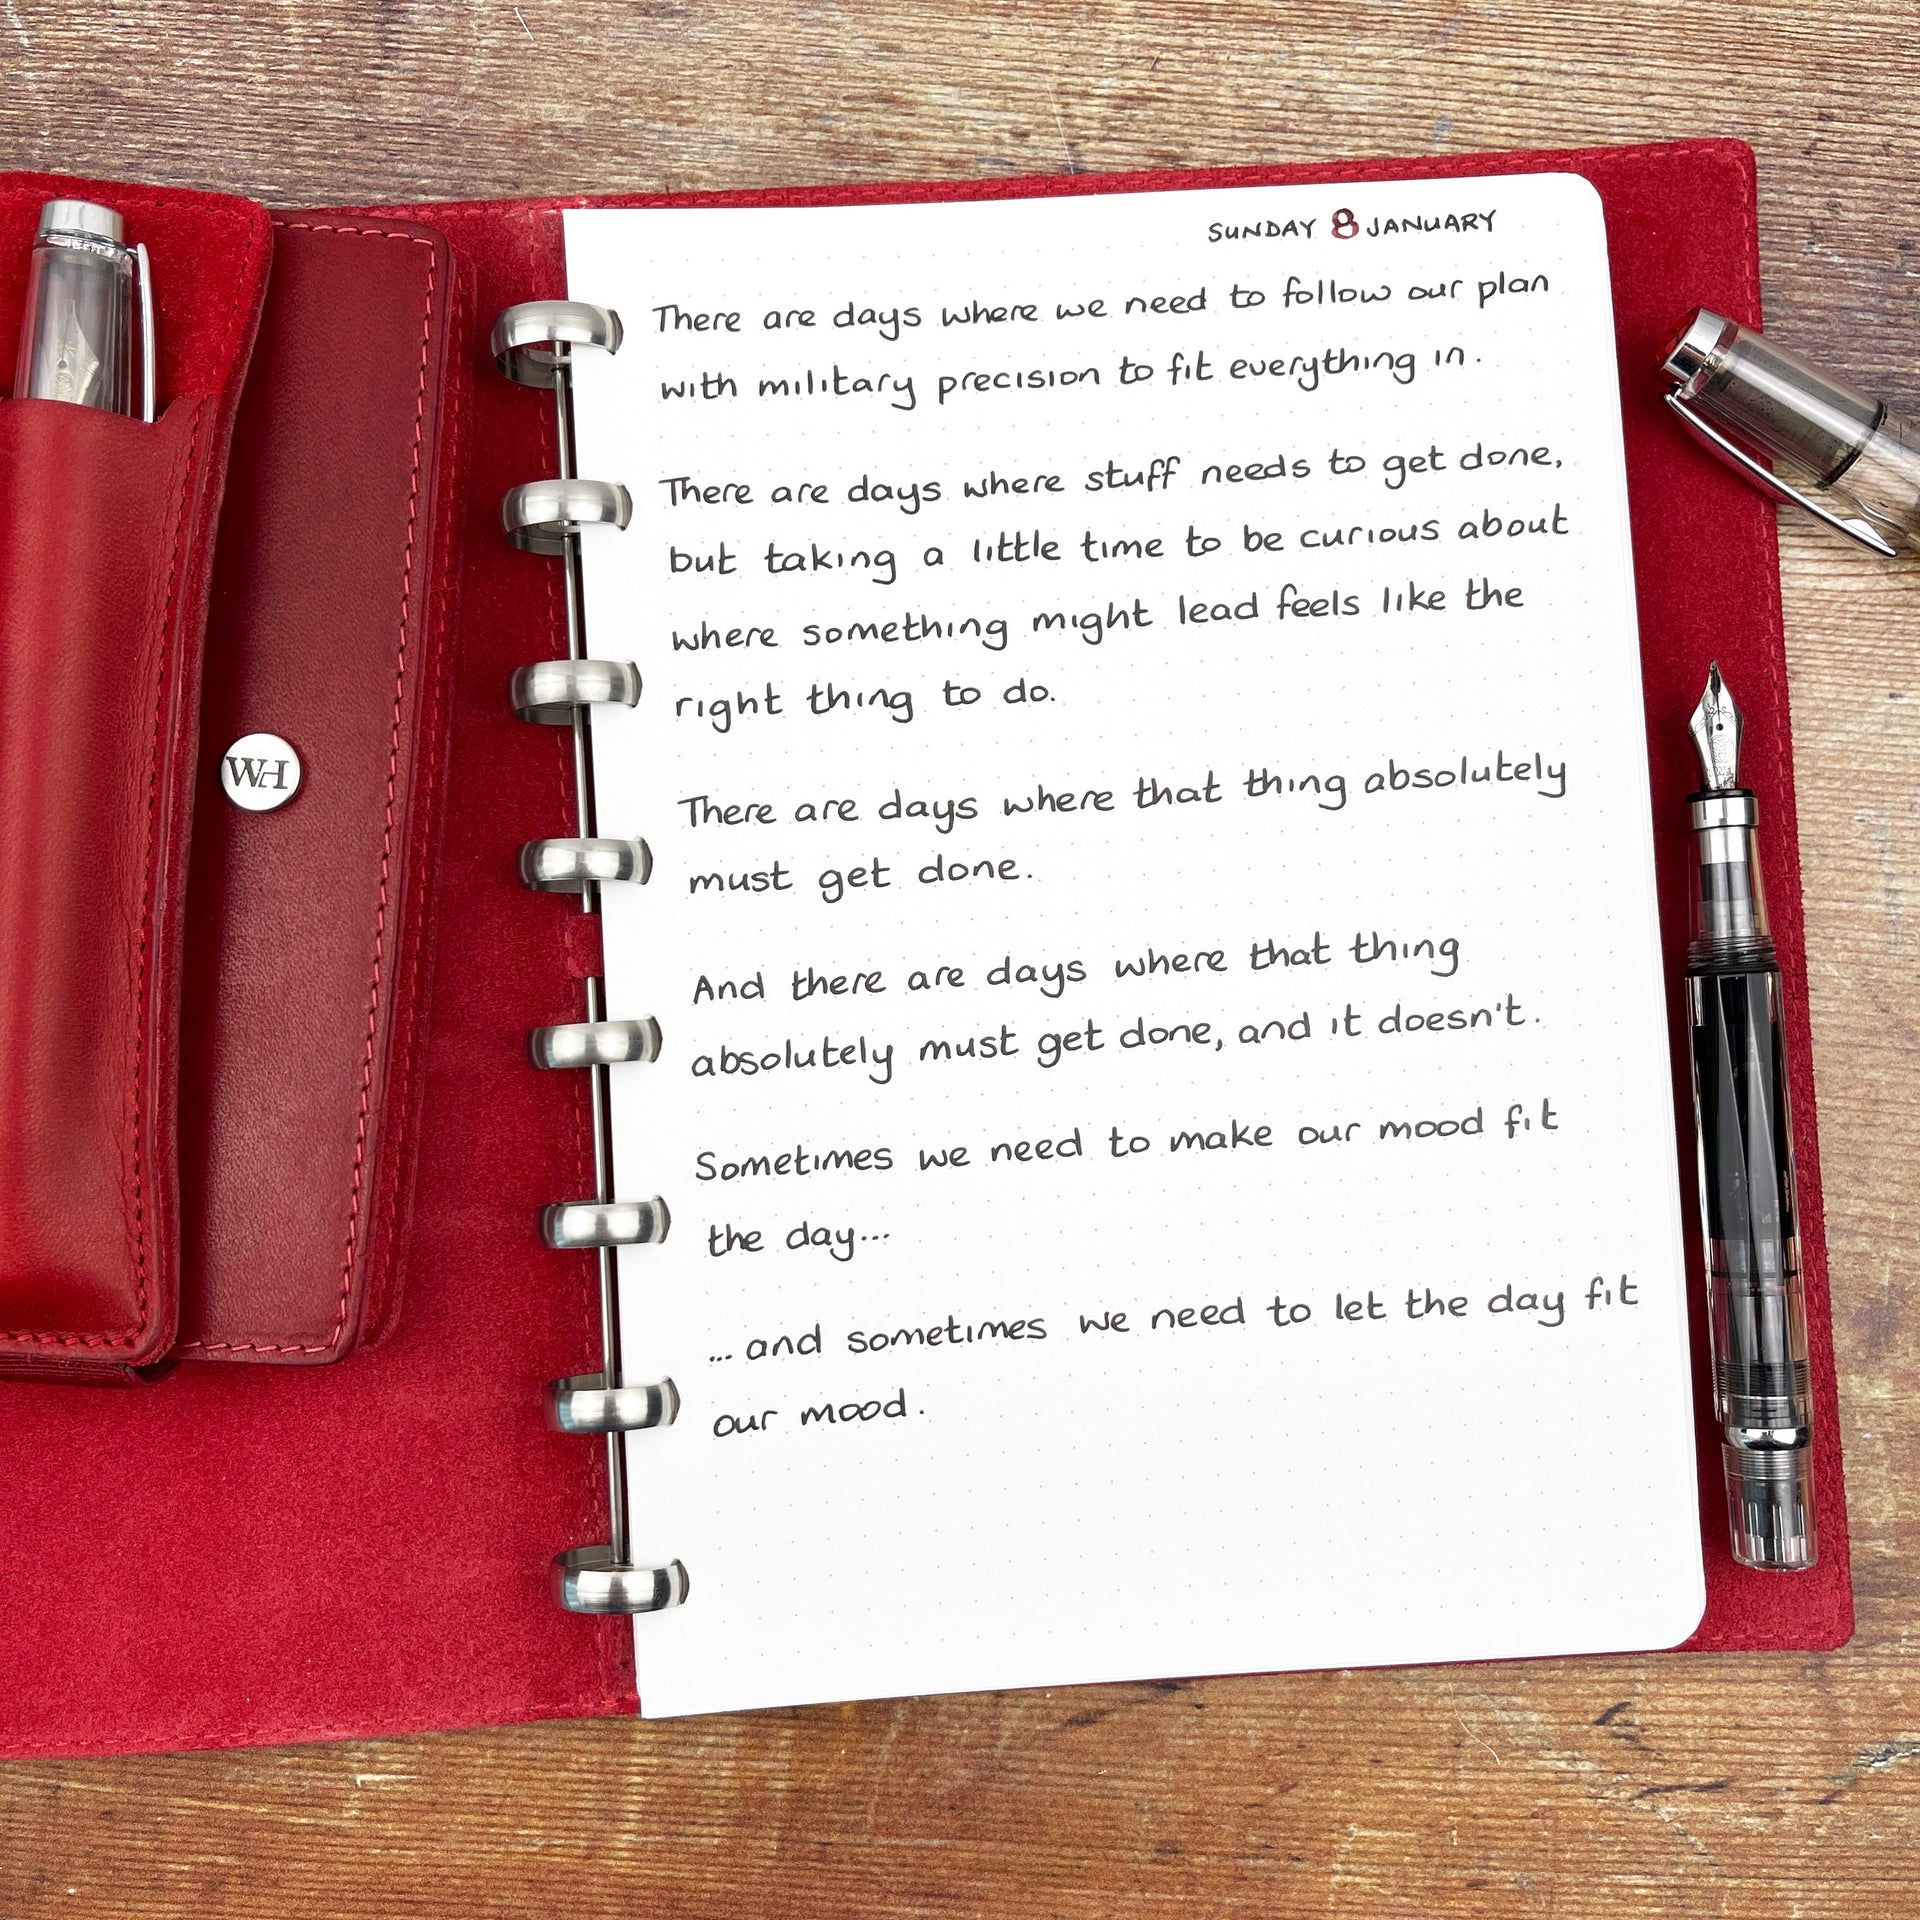 SUNDAY 8 JANUARY
There are days where we need to follow our plan
with military precision to fit everything in.
There are days where stuff needs to get done,
but taking a little time to be curious about
where something might lead feels like the
right thing to do.
There are days where that thing absolutely
must get done.
And there are days where that thing
absolutely must get done, and it doesn't.
Sometimes we need to make our mood fit
the day...
... and sometimes we need to let the day fit
our mood.
WH